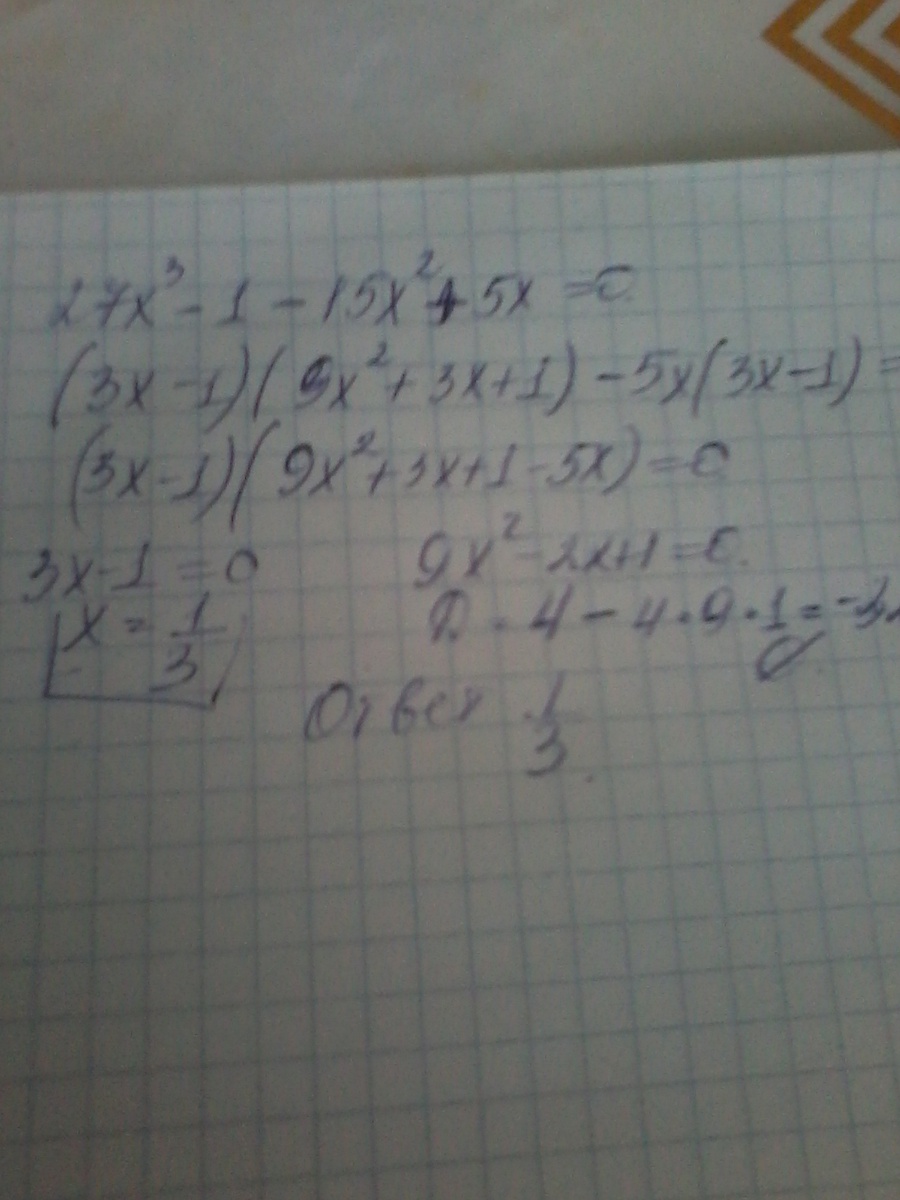 27x³ - 1 - 15x² + 5x = 0
(3x - 1)(9x² + 3x + 1) - 5x(3x - 1) =
(3x - 1)(9x² + 3x + 1 - 5x) = 0
3x - 1 = 0 9x² - 2x + 1 = 0
x = 1/3 D = 4 - 4 · 9 · 1 = -3
Ответ 1/3